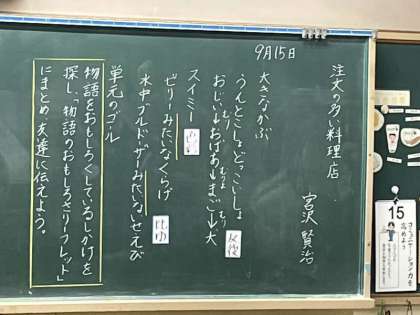 9月15日
注文の多い料理店
宮沢 賢治
大きなかぶ
うんとこしょ、どっこいしょ
おじい↓おばあ↓まご↓大
むり
むりょ
むり
反復
スイミー
ゼリーみたいなくらげ
水中ブルドーザーみたいないせえび
比ゆ
単元のゴール
物語をおもしろくしているしかけを
探し、「物語のおもしろさリーフレット」
にまとめ、友達に伝えよう。
15
コミュニケーション力を
高めよう